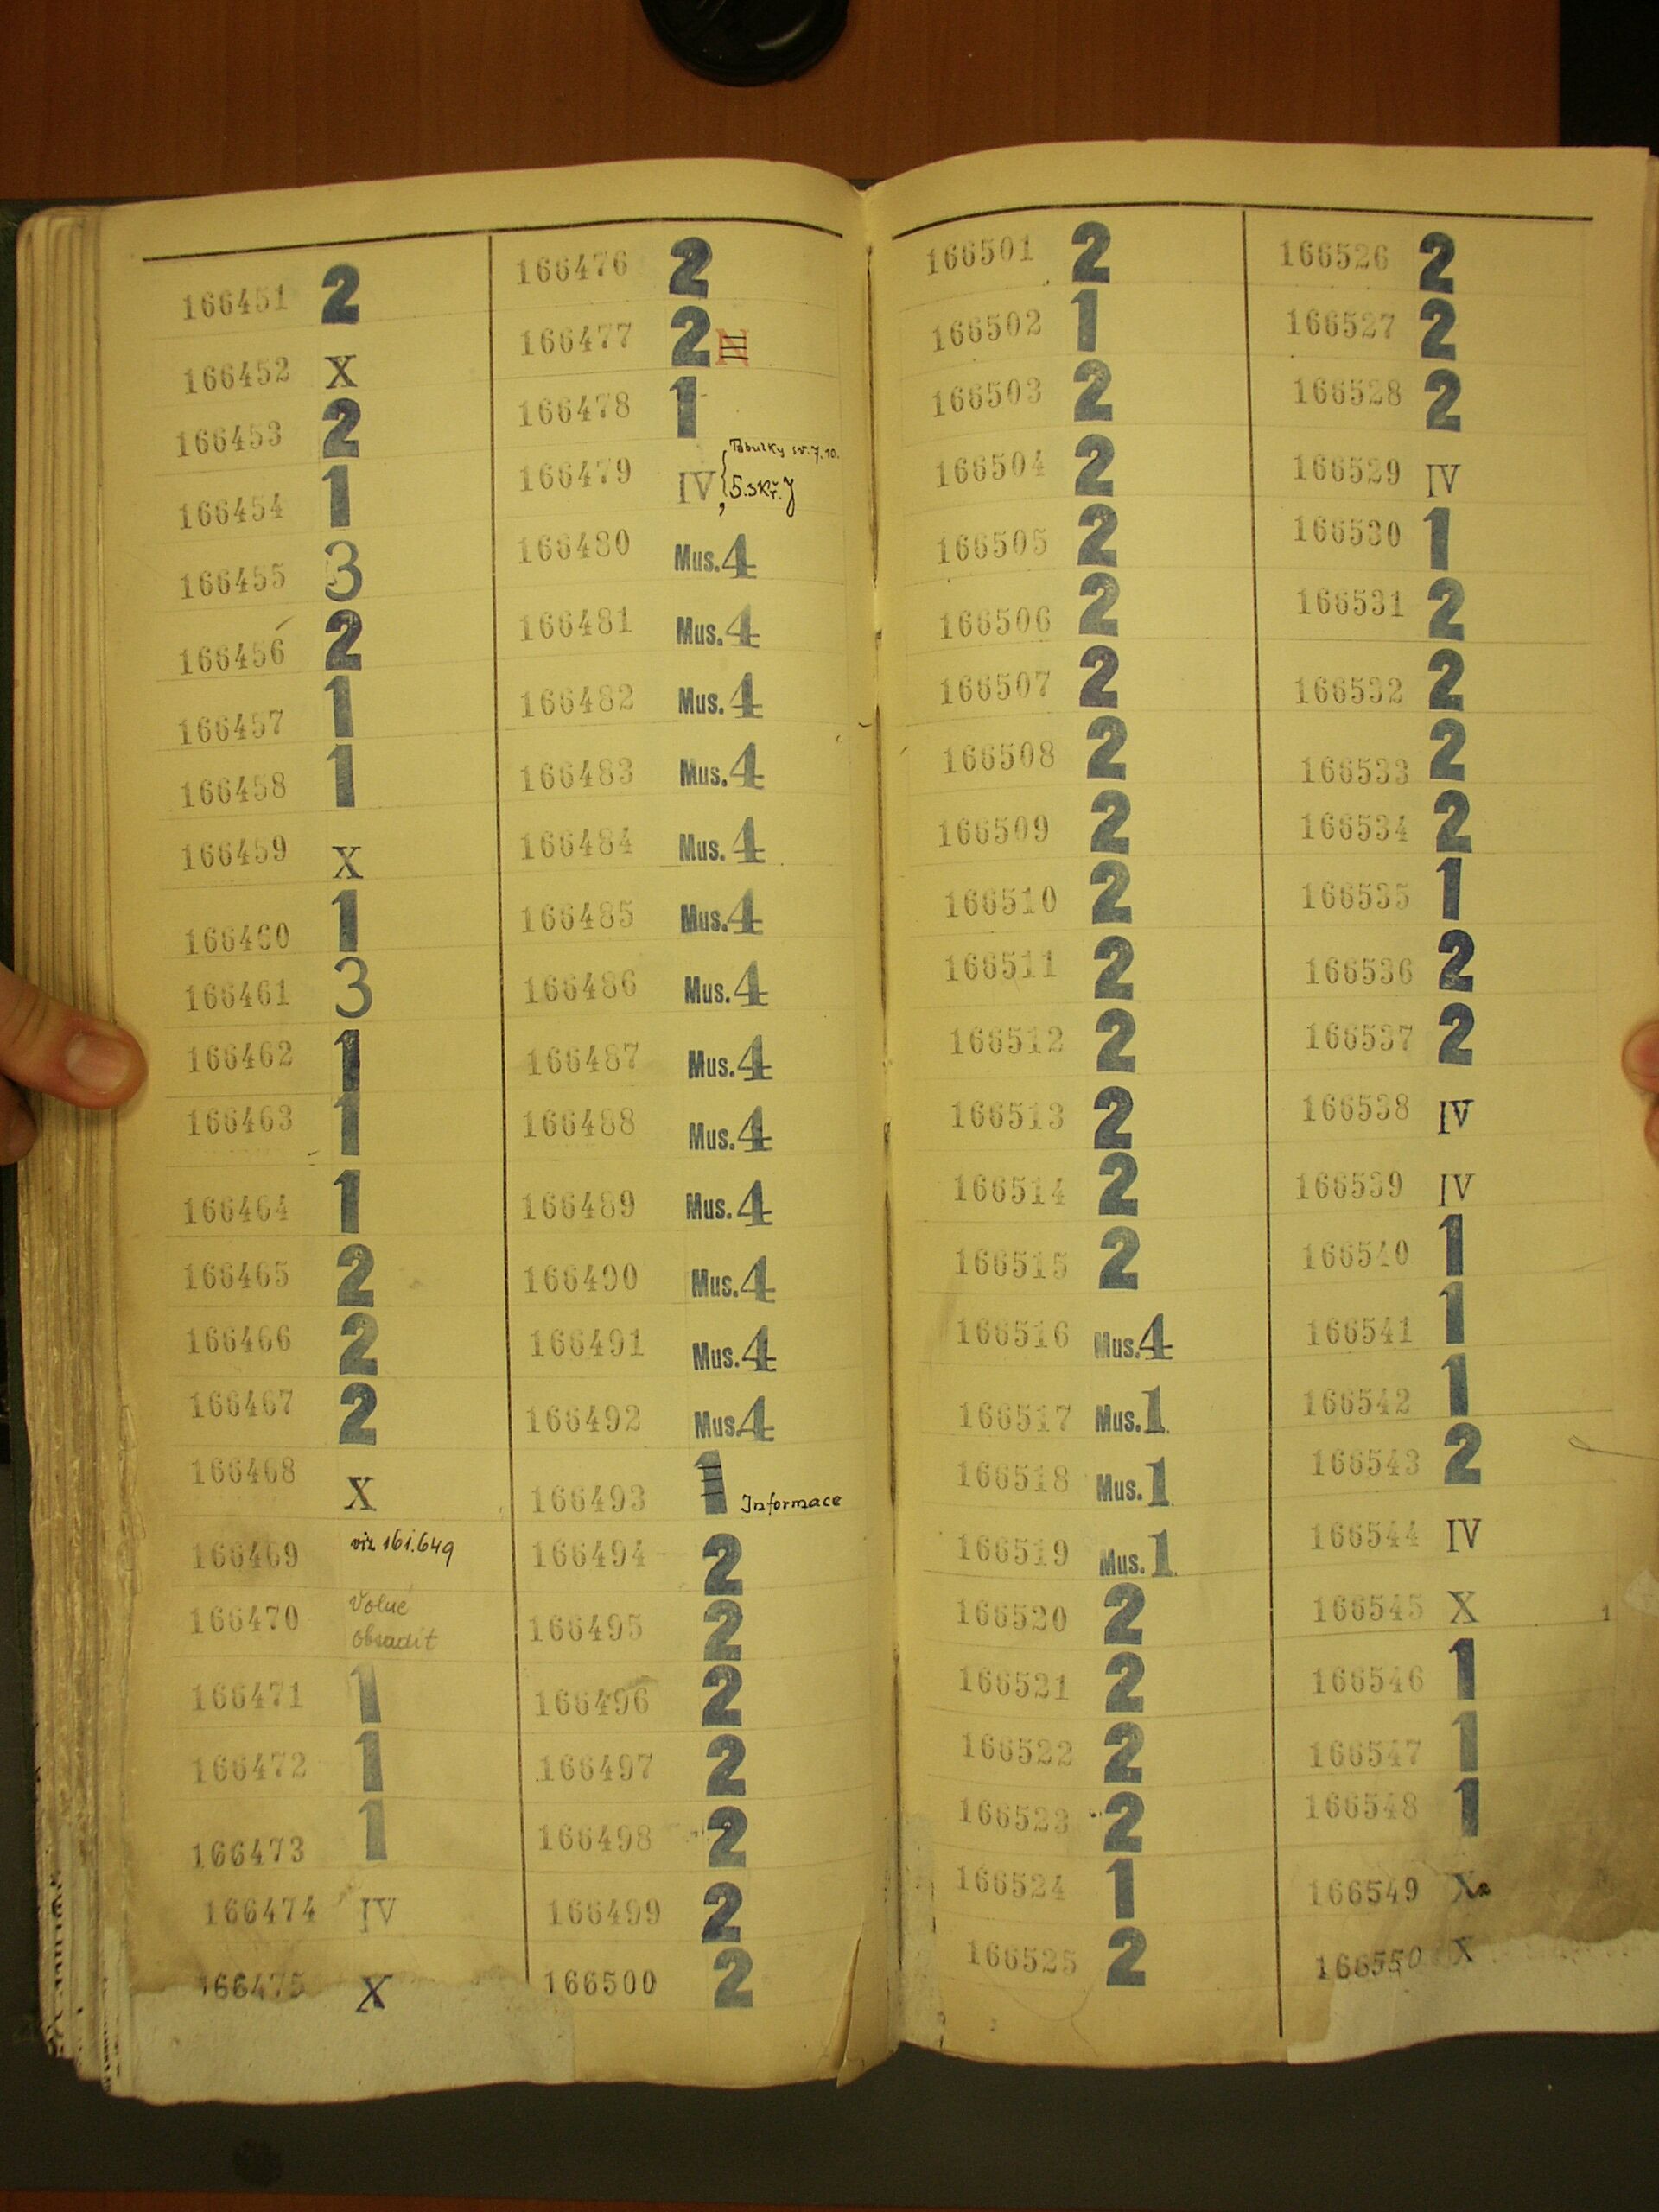 166451 2
166452 X
166453 2
166454 1
166455 3
166456 2
166457 1
166458 1
166459 X
166460 1
166461 3
166462 1
166463 1
166464 1
166465 2
166466 2
166467 2
166468 X
166469 viz 161.649
166470 Volné
obsadit
166471 1
166472 1
166473 1
166474 IV
166475 X
166476 2
166477 2 N
166478 1
Tabulky sv. 7, 10.
166479 IV 5.skř. J
166480 Mus. 4
166481 Mus. 4
166482 Mus. 4
166483 Mus. 4
166484 Mus. 4
166485 Mus. 4
166486 Mus. 4
166487 Mus. 4
166488 Mus. 4
166489 Mus. 4
166490 Mus. 4
166491 Mus. 4
166492 Mus. 4
166493 1 Informace
166494 2
166495 2
166496 2
166497 2
166498 2
166499 2
166500 2
166501 2
166502 1
166503 2
166504 2
166505 2
166506 2
166507 2
166508 2
166509 2
166510 2
166511 2
166512 2
166513 2
166514 2
166515 2
166516 Mus. 4
166517 Mus. 1
166518 Mus. 1
166519 Mus. 1
166520 2
166521 2
166522 2
166523 2
166524 1
166525 2
166526 2
166527 2
166528 2
166529 IV
166530 1
166531 2
166532 2
166533 2
166534 2
166535 1
166536 2
166537 2
166538 IV
166539 IV
166540 1
166541 1
166542 1
166543 2
166544 IV
166545 X
166546 1
166547 1
166548 1
166549 Xa
166550 X